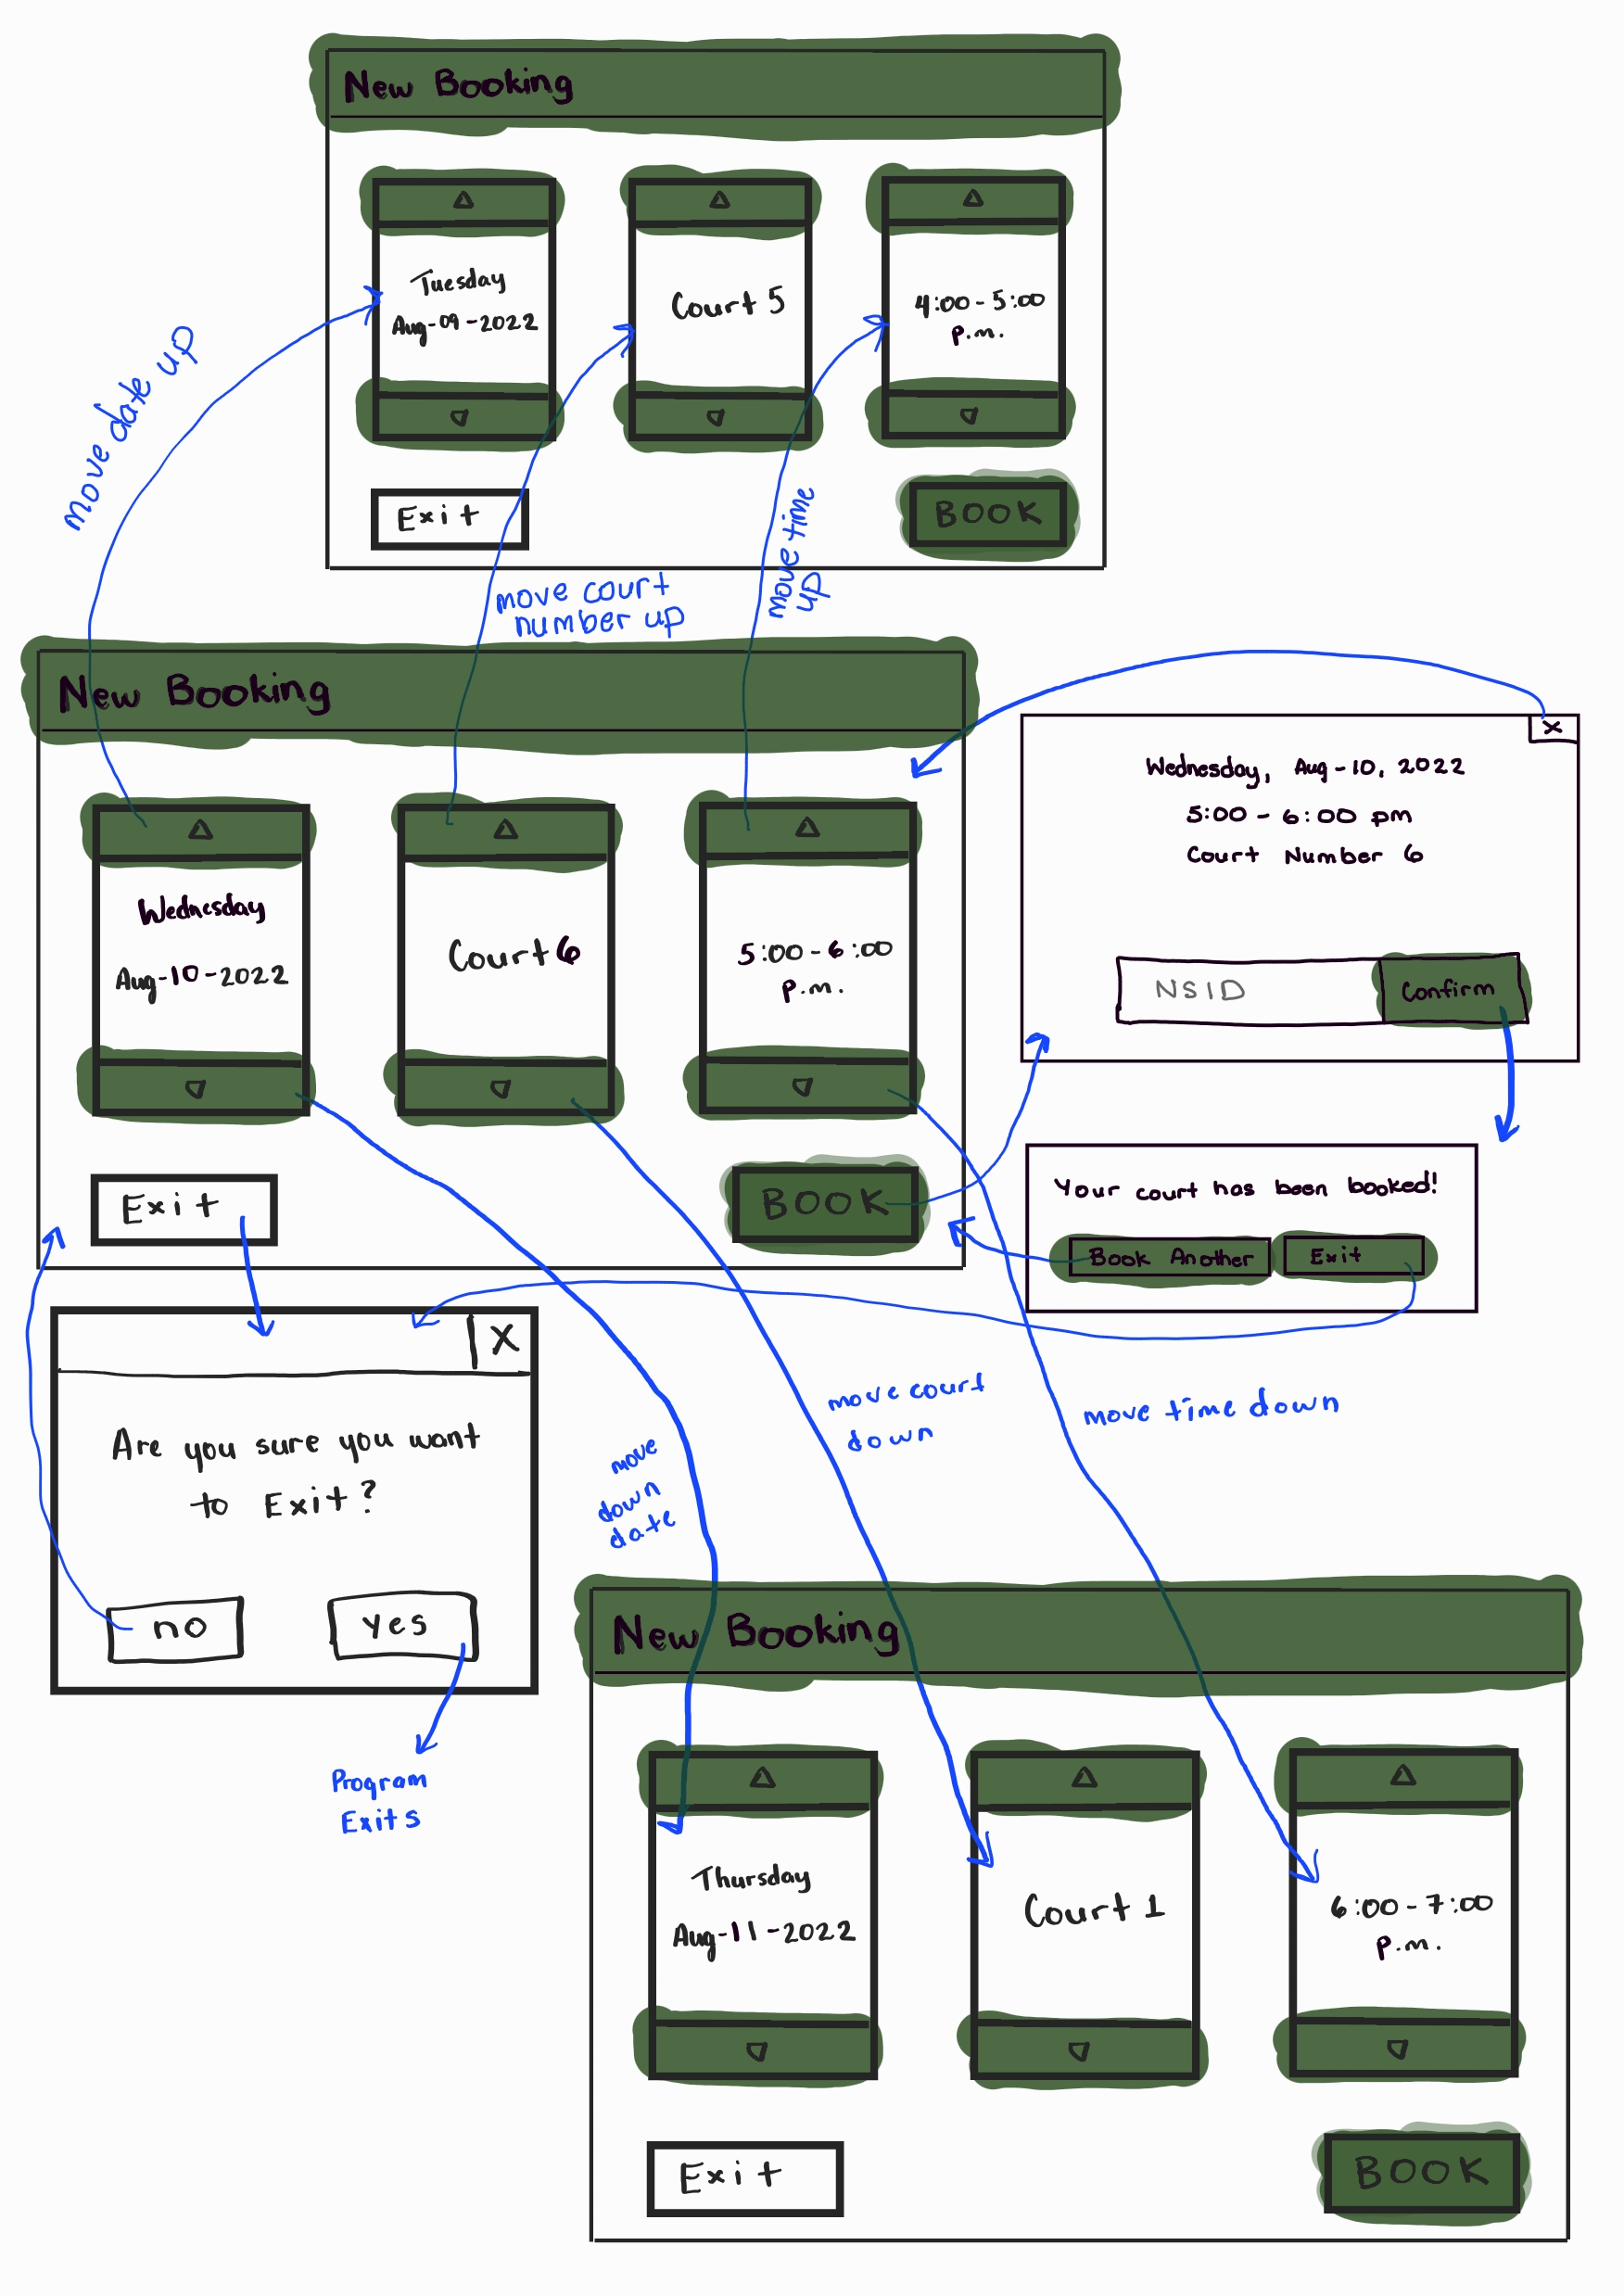 New Booking
Tuesday
Aug-09-2022
Court 5
4:00-5:00
p.m.
Exit
BOOK
move date up
move court
number up
move time
up
New Booking
Wednesday
Aug-10-2022
Court 6
5:00-6:00
p.m.
Exit
BOOK
X
Wednesday, Aug-10, 2022
5:00 - 6:00 pm
Court Number 6
NSID
Confirm
Your court has been booked!
Book Another
Exit
X
Are you sure you want
to Exit?
no
yes
Program
Exits
move
down
date
move court
down
move time down
New Booking
Thursday
Aug-11-2022
Court 1
6:00-7:00
p.m.
Exit
BOOK